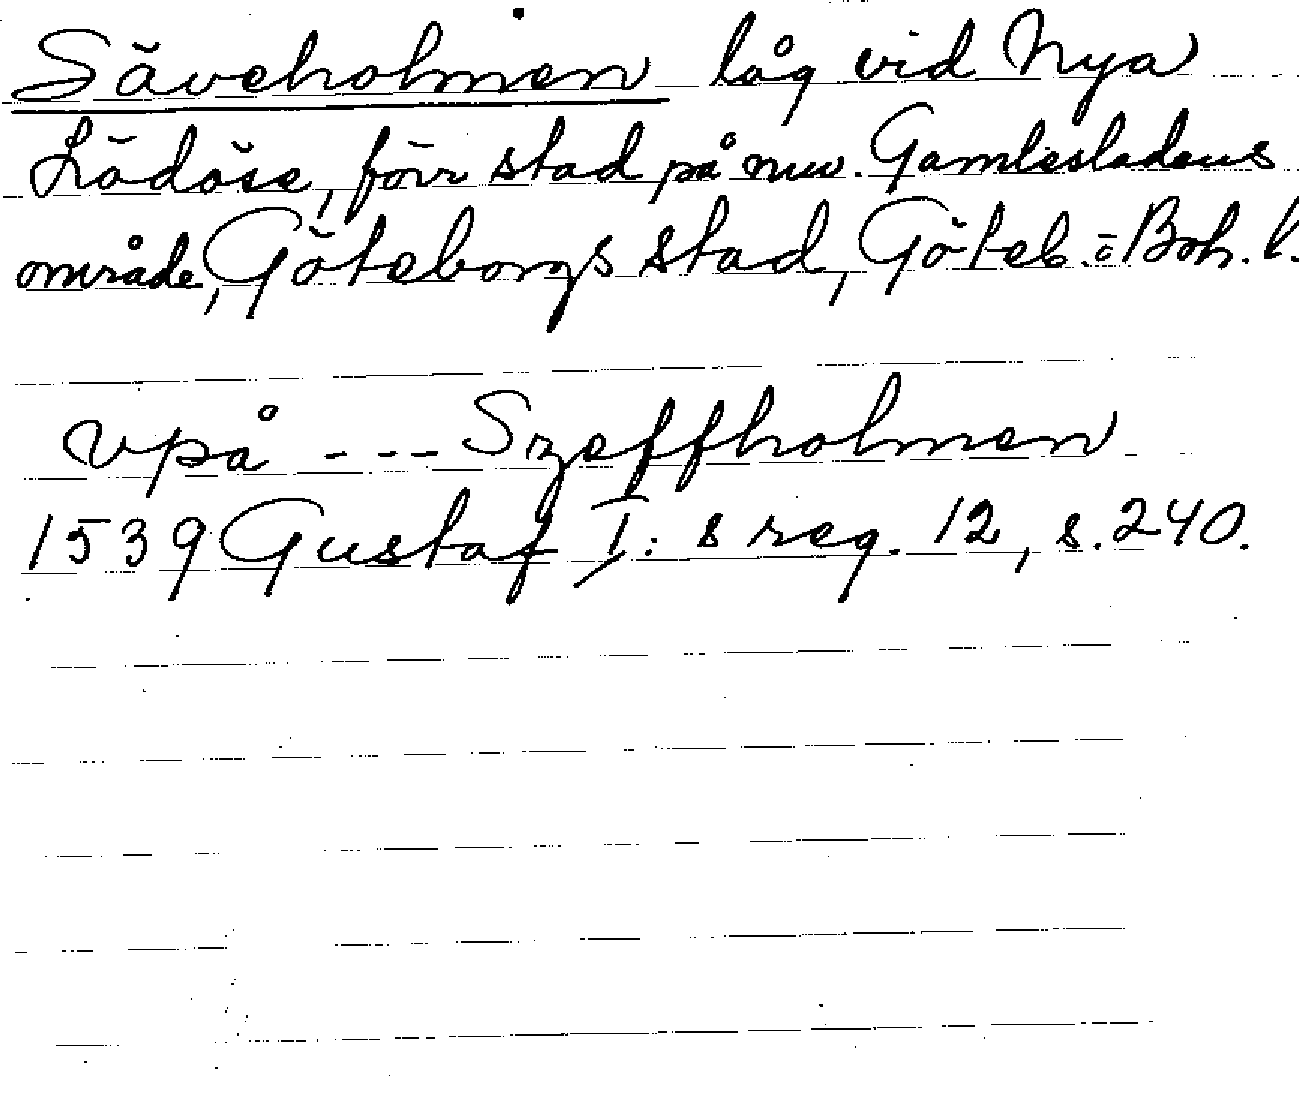 Säveholmen låg vid Nya
Lödöse, förr stad på nuv. Gamlestadens
område, Göteborgs stad, Göteb. o Boh. l.
vpå --- Szeffholmen
1539 Gustaf I:s reg. 12, s. 240.